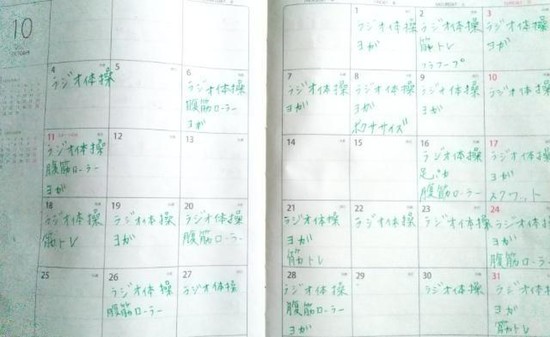 10
OCTOBER
1
ラジオ体操
ヨガ
2
ラジオ体操
筋トレ
フラフープ
3
ラジオ体操
ヨガ
4
ラジオ体操
5
6
ラジオ体操
腹筋ローラー
ヨガ
7
ラジオ体操
ヨガ
8
ラジオ体操
ヨガ
ボクササイズ
9
ラジオ体操
ヨガ
10
ラジオ体操
11
ラジオ体操
腹筋ローラー
ヨガ
12
13
14
15
16
ラジオ体操
足パカ
腹筋ローラー
17
ラジオ体操
ヨガ
スクワット
18
ラジオ体操
筋トレ
19
ラジオ体操
ヨガ
20
ラジオ体操
腹筋ローラー
21
ラジオ体操
ヨガ
筋トレ
22
ラジオ体操
23
ラジオ体操
24
ラジオ体操
腹筋ローラー
25
26
ラジオ体操
腹筋ローラー
27
ラジオ体操
28
ラジオ体操
腹筋ローラー
ヨガ
29
30
ラジオ体操
31
ラジオ体操
ヨガ
筋トレ